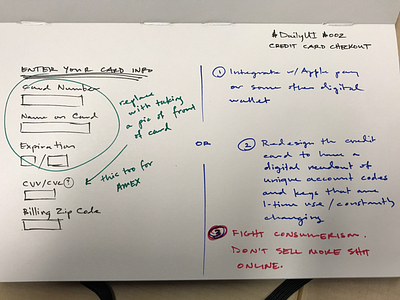 #DailyUI #002
CREDIT CARD CHECKOUT
ENTER YOUR CARD INFO
Card Number
Name on Card
Expiration
/
CVV/CVC ?
Billing Zip Code
replace
with taking
a pic of front
of card
this too for
AMEX
① Integrate w/Apple pay
or some other digital
wallet
OR
② Redesign the credit
card to have a
digital readout of
unique account codes
and keys that are
1-time use / constantly
changing
③ FIGHT CONSUMERISM.
DON'T SELL MORE SHIT
ONLINE.